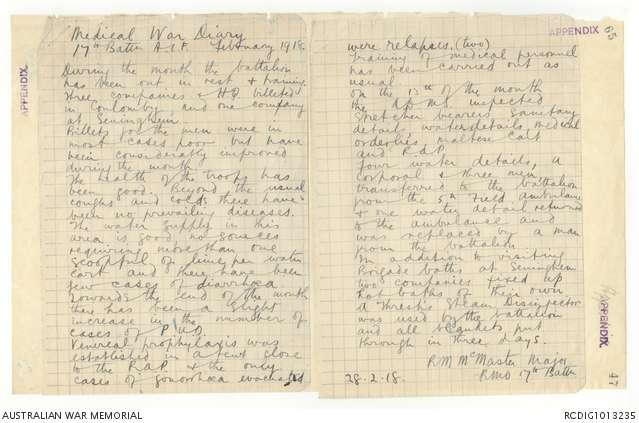 Medical War Diary
17th Battn A.I.F. February 1918.
During the month the battalion
has been out in rest & training
Three companies & HQ billeted
in Coulomby and one company
at Seninghem.
Billets for the men were in
most cases poor but have
been considerably improved
during the month.
The health of the troops has
been good. Beyond the usual
coughs and colds there have
been no prevailing diseases.
The water supply in this
area is good no sources
requiring more than one
scoopful of lime per water
cart and there have been
few cases of diarrhoea
Towards the end of the month
there has been a slight
increase in the number of
cases of P.U.O.
Venereal prophylaxis was
established in a tent close
to the R.A.P. & the only
cases of gonorrhoea evacuated
APPENDIX
were relapses. (two)
Training of medical personnel
has been carried out as
usual
On the 13th of the month
the ADMS inspected
stretcher bearers sanitary
details, water details, medical
orderlies, maltese cart
and R.A.P.
Four water details, a
corporal & three men
transferred to the battalion
from the 5th Field Ambulance
& one water detail returned
to the ambulance and
was replaced by a man
from the battalion
In addition to visiting
Brigade baths at Seninghem
two companies fixed up
hot baths of their own
A Thresh Steam Disinfector
was used by the battalion
and all blankets put
through in three days.
R M McMaster Major
28.2.18. RMO 17th Battn
APPENDIX 65
APPENDIX
47
AUSTRALIAN WAR MEMORIAL
RCDIG1013235